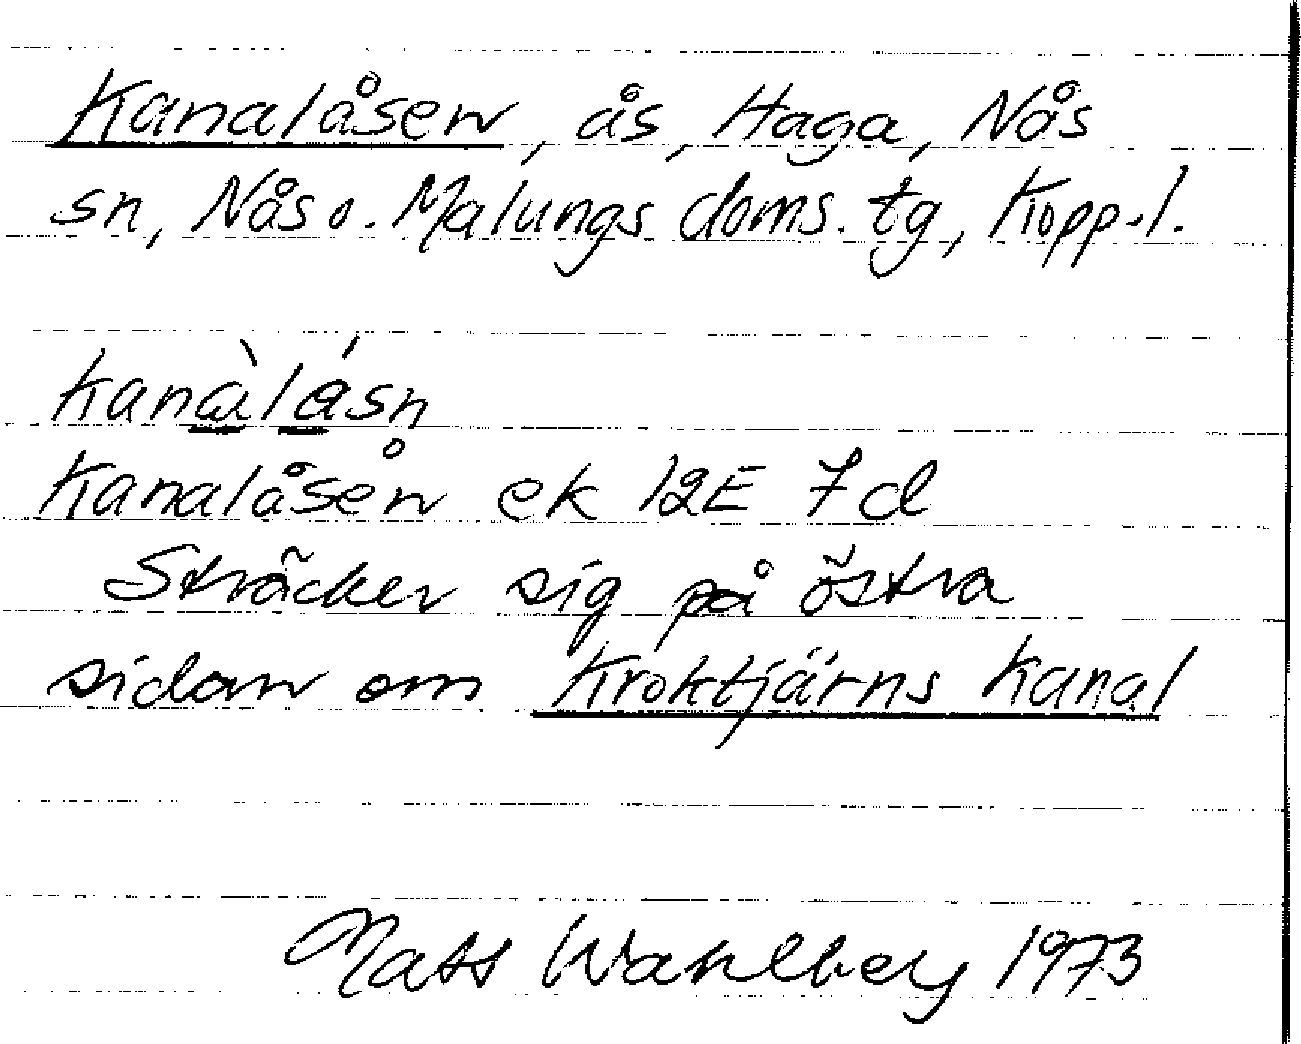 Kanalåsen, ås, Haga, Nås
sn, Nås o. Malungs doms. tg, Kopp.l.
kanàlásn
Kanalåsen ek 12E 7d
Sträcker sig på östra
sidan om Kroktjärns kanal
Mats Wahlberg 1973